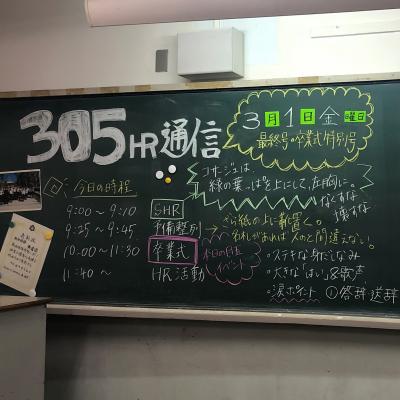 305HR通信
3月1日金曜日
最終号の卒業式特別号
コサージュは、
緑の葉っぱを上にして、左胸に。
なくすな
壊すな
今日の時程
9:00～9:10 SHR
9:25～9:45 準備整列
10:00～11:30 卒業式
11:40～ HR活動
ざら紙の上に載置く。
名札があれば人のと間違えない。
本日の目玉
イベント
・ステキな身だしなみ
・大きな「はい」&歌声
・涙ポイント ①答辞・送辞